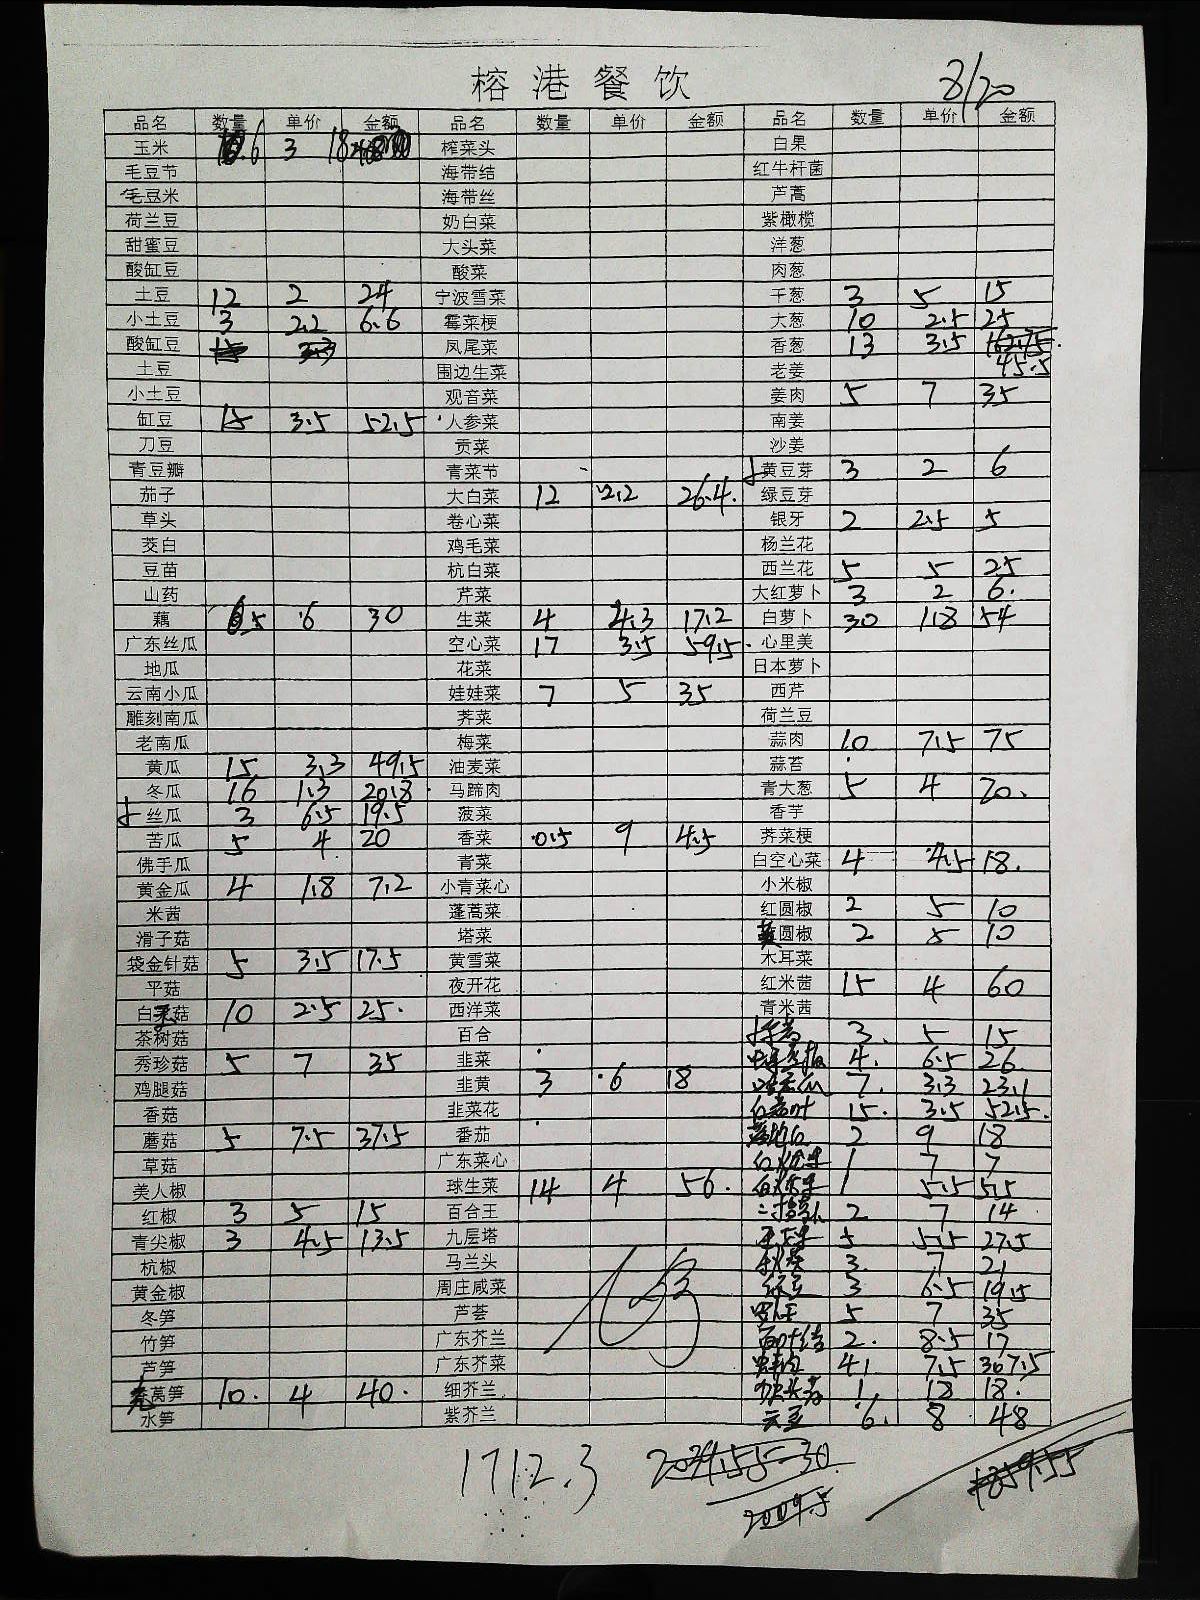 榕港餐饮
8/20
品名 数量 单价 金额 品名 数量 单价 金额 品名 数量 单价 金额
玉米 6 3 18 榨菜头 白果
毛豆节 海带结 红牛杆菌
毛豆米 海带丝 芦蒿
荷兰豆 奶白菜 紫橄榄
甜蜜豆 大头菜 洋葱
酸缸豆 酸菜 肉葱
土豆 12 2 24 宁波雪菜 干葱 3 5 15
小土豆 3 2.2 6.6 霉菜梗 大葱 10 2.5 25
酸缸豆 15 3.3 凤尾菜 香葱 13 3.5 162.75
土豆 围边生菜 老姜 45.5
小土豆 观音菜 姜肉 5 7 35
缸豆 15 3.5 52.5 人参菜 南姜
刀豆 贡菜 沙姜
青豆瓣 青菜节 黄豆芽 3 2 6
茄子 大白菜 12 2.2 26.4 绿豆芽
草头 卷心菜 银牙 2 2.5 5
茭白 鸡毛菜 杨兰花
豆苗 杭白菜 西兰花 5 5 25
山药 芹菜 大红萝卜 3 2 6
藕 5 6 30 生菜 4 4.3 17.2 白萝卜 30 1.8 54
广东丝瓜 空心菜 17 3.5 59.5 心里美
地瓜 花菜 日本萝卜
云南小瓜 娃娃菜 7 5 35 西芹
雕刻南瓜 荠菜 荷兰豆
老南瓜 梅菜 蒜肉 10 7.5 75
黄瓜 15 3.3 49.5 油麦菜 蒜苔
冬瓜 16 1.3 20.8 马蹄肉 青大葱 5 4 20
丝瓜 3 6.5 19.5 菠菜 香芋
苦瓜 5 4 20 香菜 0.5 9 4.5 荠菜梗
佛手瓜 青菜 白空心菜 4 4.5 18
黄金瓜 4 1.8 7.2 小青菜心 小米椒
米茜 蓬蒿菜 红圆椒 2 5 10
滑子菇 塔菜 圆椒 2 5 10
袋金针菇 5 3.5 17.5 黄雪菜 木耳菜
平菇 夜开花 红米茜 15 4 60
白菇 10 2.5 25 西洋菜 青米茜
茶树菇 百合 3 5 15
秀珍菇 5 7 35 韭菜 4 6.5 26
鸡腿菇 韭黄 3 6 18 7 3.3 23.1
香菇 韭菜花 红苋叶 15 3.5 52.5
蘑菇 5 7.5 37.5 番茄 2 9 18
草菇 广东菜心 1 7 7
美人椒 球生菜 14 4 56 1 5.5 5.5
红椒 3 5 15 百合王 2 7 14
青尖椒 3 4.5 13.5 九层塔 5 5.5 27.5
杭椒 马兰头 3 7 21
黄金椒 周庄咸菜 3 6.5 19.5
冬笋 芦荟 5 7 35
竹笋 广东芥兰 百叶结 2 8.5 17
芦笋 广东芥菜 41 7.5 307.5
莴笋 10 4 40 细芥兰 1 18 18
水笋 紫芥兰 云豆 6 8 48
1712.3 2039.55-30 1859.55
2009.5